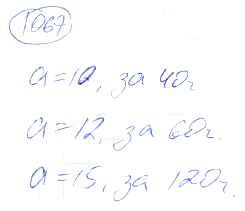 1067
a=10, за 40г
a=12, за 60г.
a=15, за 120г.